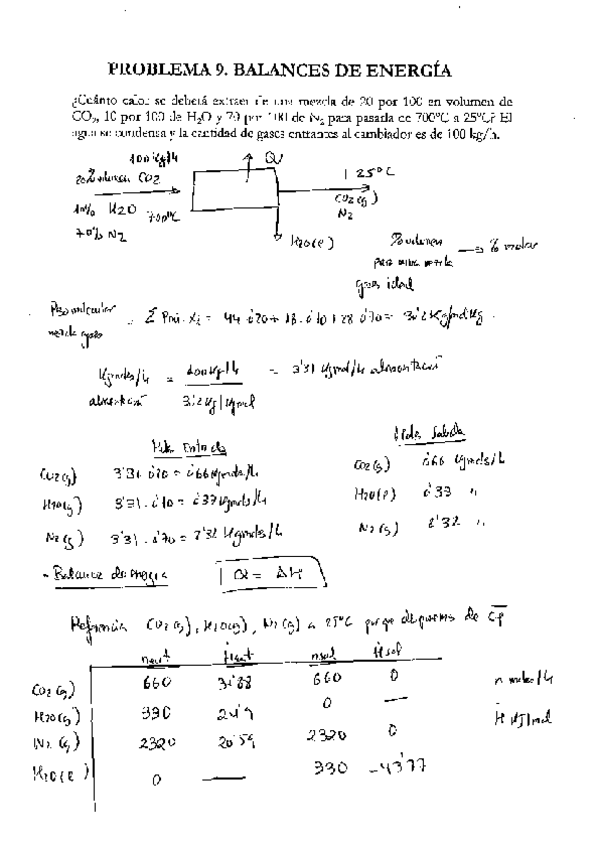 PROBLEMA 9. BALANCES DE ENERGÍA
¿Cuánto calor se deberá extraer de una mezcla de 20 por 100 en volumen de
CO2, 10 por 100 de H2O y 70 por 100 de N2 para pasarla de 700°C a 25°C? El
agua se condensa y la cantidad de gases entrantes al cambiador es de 100 kg/h.
100 kg/h
20% volumen CO2
10% H2O 700°C
70% N2
Q
25°C
CO2(g)
N2
H2O(l)
% volumen → % molar
para una mezcla
gases ideal
Peso molecular
mezcla gases = Σ Pmi · Xi = 44 · 0'20 + 18 · 0'10 + 28 · 0'70 = 30'2 Kg/mol Kg
Kgmoles/h = 100 Kg/h = 3'31 Kgmol/h alimentación
alimentación 30'2 Kg/Kgmol
Moles Entrada
CO2(g) 3'31 · 0'20 = 0'66 Kgmoles/h
H2O(g) 3'31 · 0'10 = 0'33 Kgmoles/h
N2(g) 3'31 · 0'70 = 2'32 Kgmoles/h
Moles Salida
CO2(g) 0'66 Kgmoles/h
H2O(l) 0'33 "
N2(g) 2'32 "
- Balance de energía Q = ΔH
Referencia CO2(g), H2O(g), N2(g) a 25°C porque disponemos de Cp
nent Hent nsal Hsal
CO2(g) 660 660 0 n moles/h
H2O(g) 330 24'9 0 — H KJ/mol
N2(g) 2320 20'59 2320 0
H2O(l) 0 — 330 -43'77